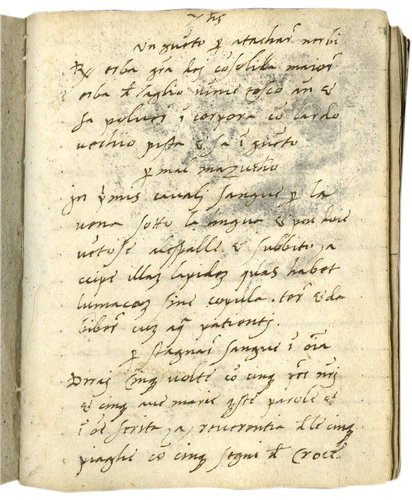 Un guẽto p atachar nerbi
℞ erba gra dej cõsolida maior
erba d taglio uimie tosco an &
fa poluer ĩ corpora cõ lardo
uechio pista & fa ĩ guẽto
p mal mazuchio
jn p̃mis cauali sangue p la
uena sotto la lingua & poi doie
uẽtose alespalle & subbito, a
ccipe illas lapides quas habet
lumacas sine copula. ter & da
biber cuz aq̃ patienti
p stagnar sangue ĩ oĩa
Dirai cinq̃ uolte cõ cinq̃ pr̃ nr̃j
& cinq̃ aue marie q̃ste parole &
ĩ oe ferita, a, reuerentia d le cinq̃
piaghe cõ cinq̃ segni d Croce